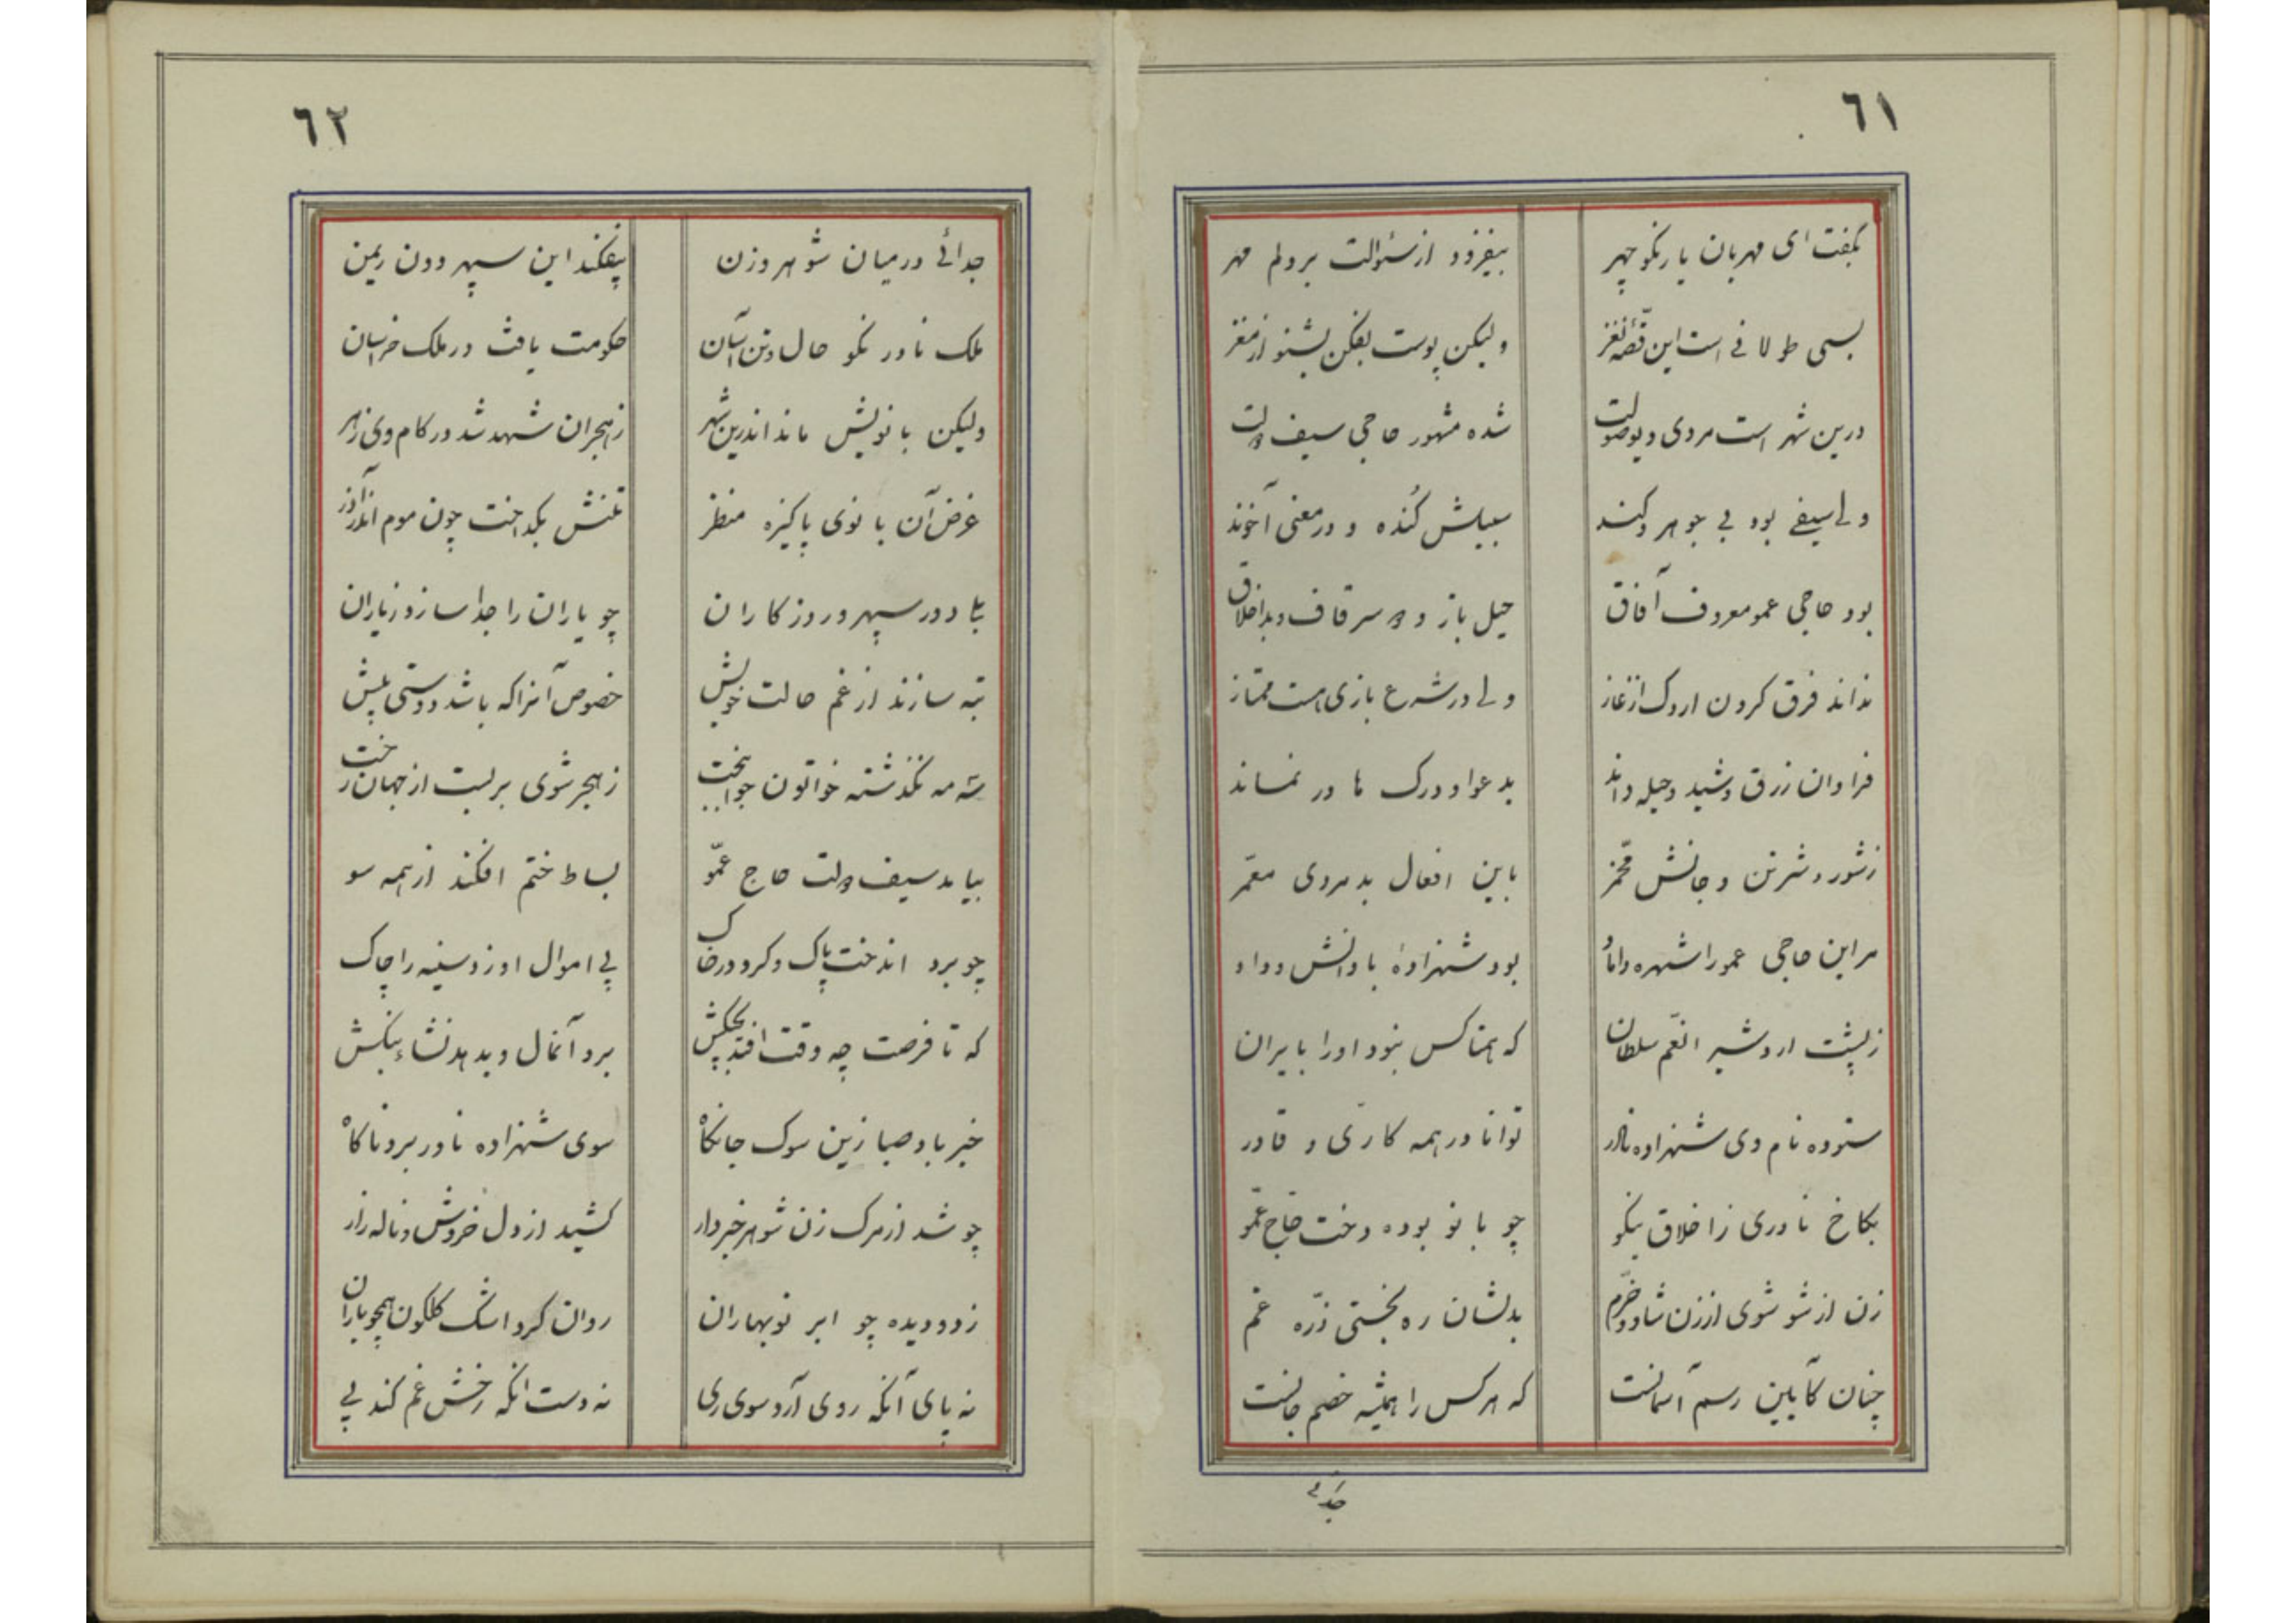 ٦١
بگفت ای مهربان یار نکو چهر بیفزود از سئوالت بر دلم مهر
بسی طولانی است این قصّهٔ نغز ولیکن پوست بفکن بشنو از مغز
درین شهر است مردی دیو صولت شده مشهور حاجی سیف دولت
ولی سیفی بود بی جوهر و کند سبیلش کُنده و در معنی آخوند
بود حاجی عمو معروف آفاق حیل باز و سرقاف و بد اخلاق
نداند فرق کردن اردک از غاز ولی در شرع بازی هست ممتاز
فراوان زرق و شید و حیله داند بدعوا و درک ها در نماند
ز شور و شر تن و جانش مخمّر باین افعال بد مردی معمّر
مر این حاجی عمو را شهره داماد بود شهزادهٔ با دانش و داد
ز پشت اردشیر انعّم سلطان که همتا کس نبود او را بایران
ستوده نام وی شهزاده نادر توانا در همه کاری و قادر
بکاخ نادری ز اخلاق نیکو چو بانو بوده دخت حاج عمّو
زن از شو شوی از زن شاد و خرّم بدلشان ره نجستی ذرّه غم
چنان کآیین رسم آسمانست که هر کس را همیشه خصم جانست
جدائی
٦٢
جدائی در میان شوهر و زن بیفکند این سپهر دون ریمن
ملک نادر نکو حال و تن آسان حکومت یافت در ملک خراسان
ولیکن بانویش ماند اندرین شهر ز هجران شهد شد در کام وی زهر
غرض آن بانوی پاکیزه منظر تنش بگداخت چون موم اندر آذر
بلی دور سپهر و روزگاران چو یاران را جدا سازد ز یاران
تبه سازند از غم حالت خویش خصوص آنرا که باشد دوستی بیش
سه مه نگذشته خواتون جوانبخت ز هجر شوی بر بست از جهان رخت
بیامد سیف دولت حاج عمّو بساط ختم افکند از همه سو
چو برد اندخت پاک و کرد در خاک پی اموال او زد سینه را چاک
که تا فرصت چه وقت افتد بچنگش برد آنمال و بدهد نشاء بنگش
خبر باد صبا زین سوک جانکاه سوی شهزاده نادر برد ناگاه
چو شد از مرگ زن شوهر خبردار کشید از دل خروش و ناله زار
ز دو دیده چو ابر نوبهاران روان کرد اشک گلگون همچو باران
نه پای آنکه روی آرد سوی ری نه دست انکه رخش غم کند پی